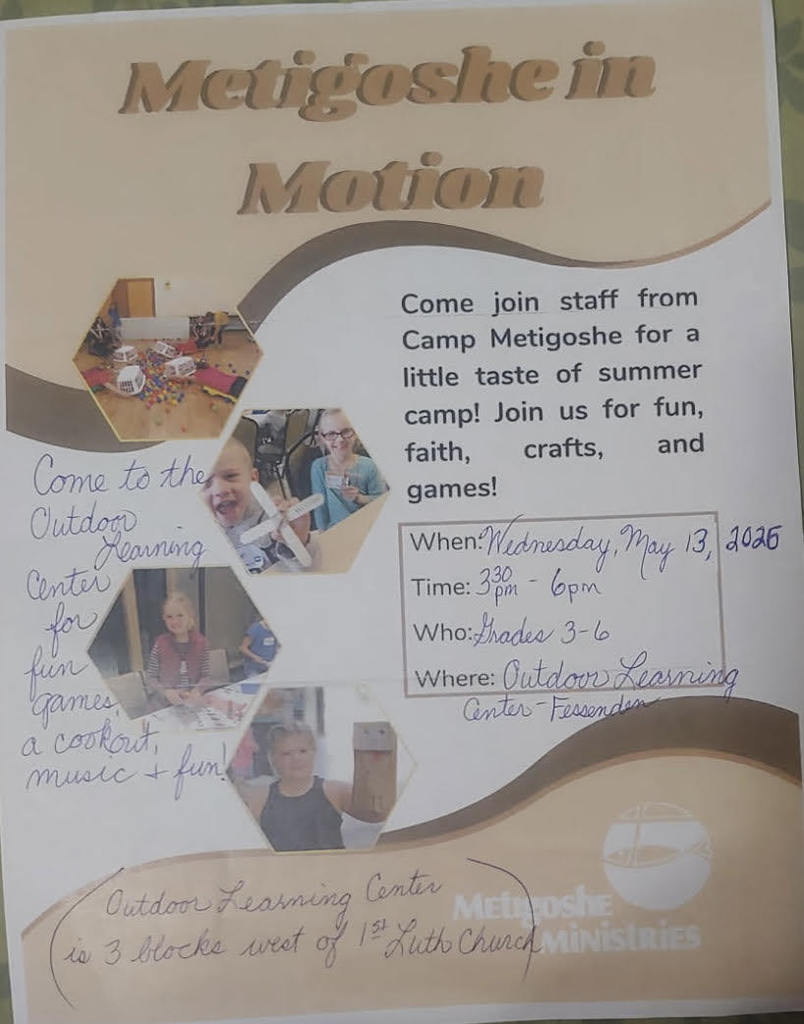 Metigoshe in
Motion
Come join staff from
Camp Metigoshe for a
little taste of summer
camp! Join us for fun,
faith, crafts, and
games!
Come to the
Outdoor
Learning
Center
for
fun
games,
a cookout,
music + fun!
When: Wednesday, May 13, 2026
Time: 3:30 pm - 6pm
Who: Grades 3-6
Where: Outdoor Learning
Center - Fessenden
(Outdoor Learning Center
is 3 blocks west of 1st Luth Church)
Metigoshe
Ministries